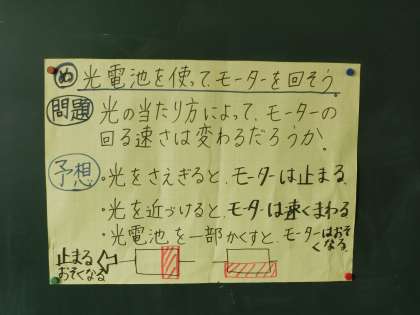 め 光電池を使って、モーターを回そう。
問題 光の当たり方によって、モーターの
回る速さは変わるだろうか。
予想 ・光をさえぎると、モーターは止まる。
・光を近づけると、モーターは速くまわる
・光電池を一部かくすと、モーターはおそくなる。
止まる
おそくなる